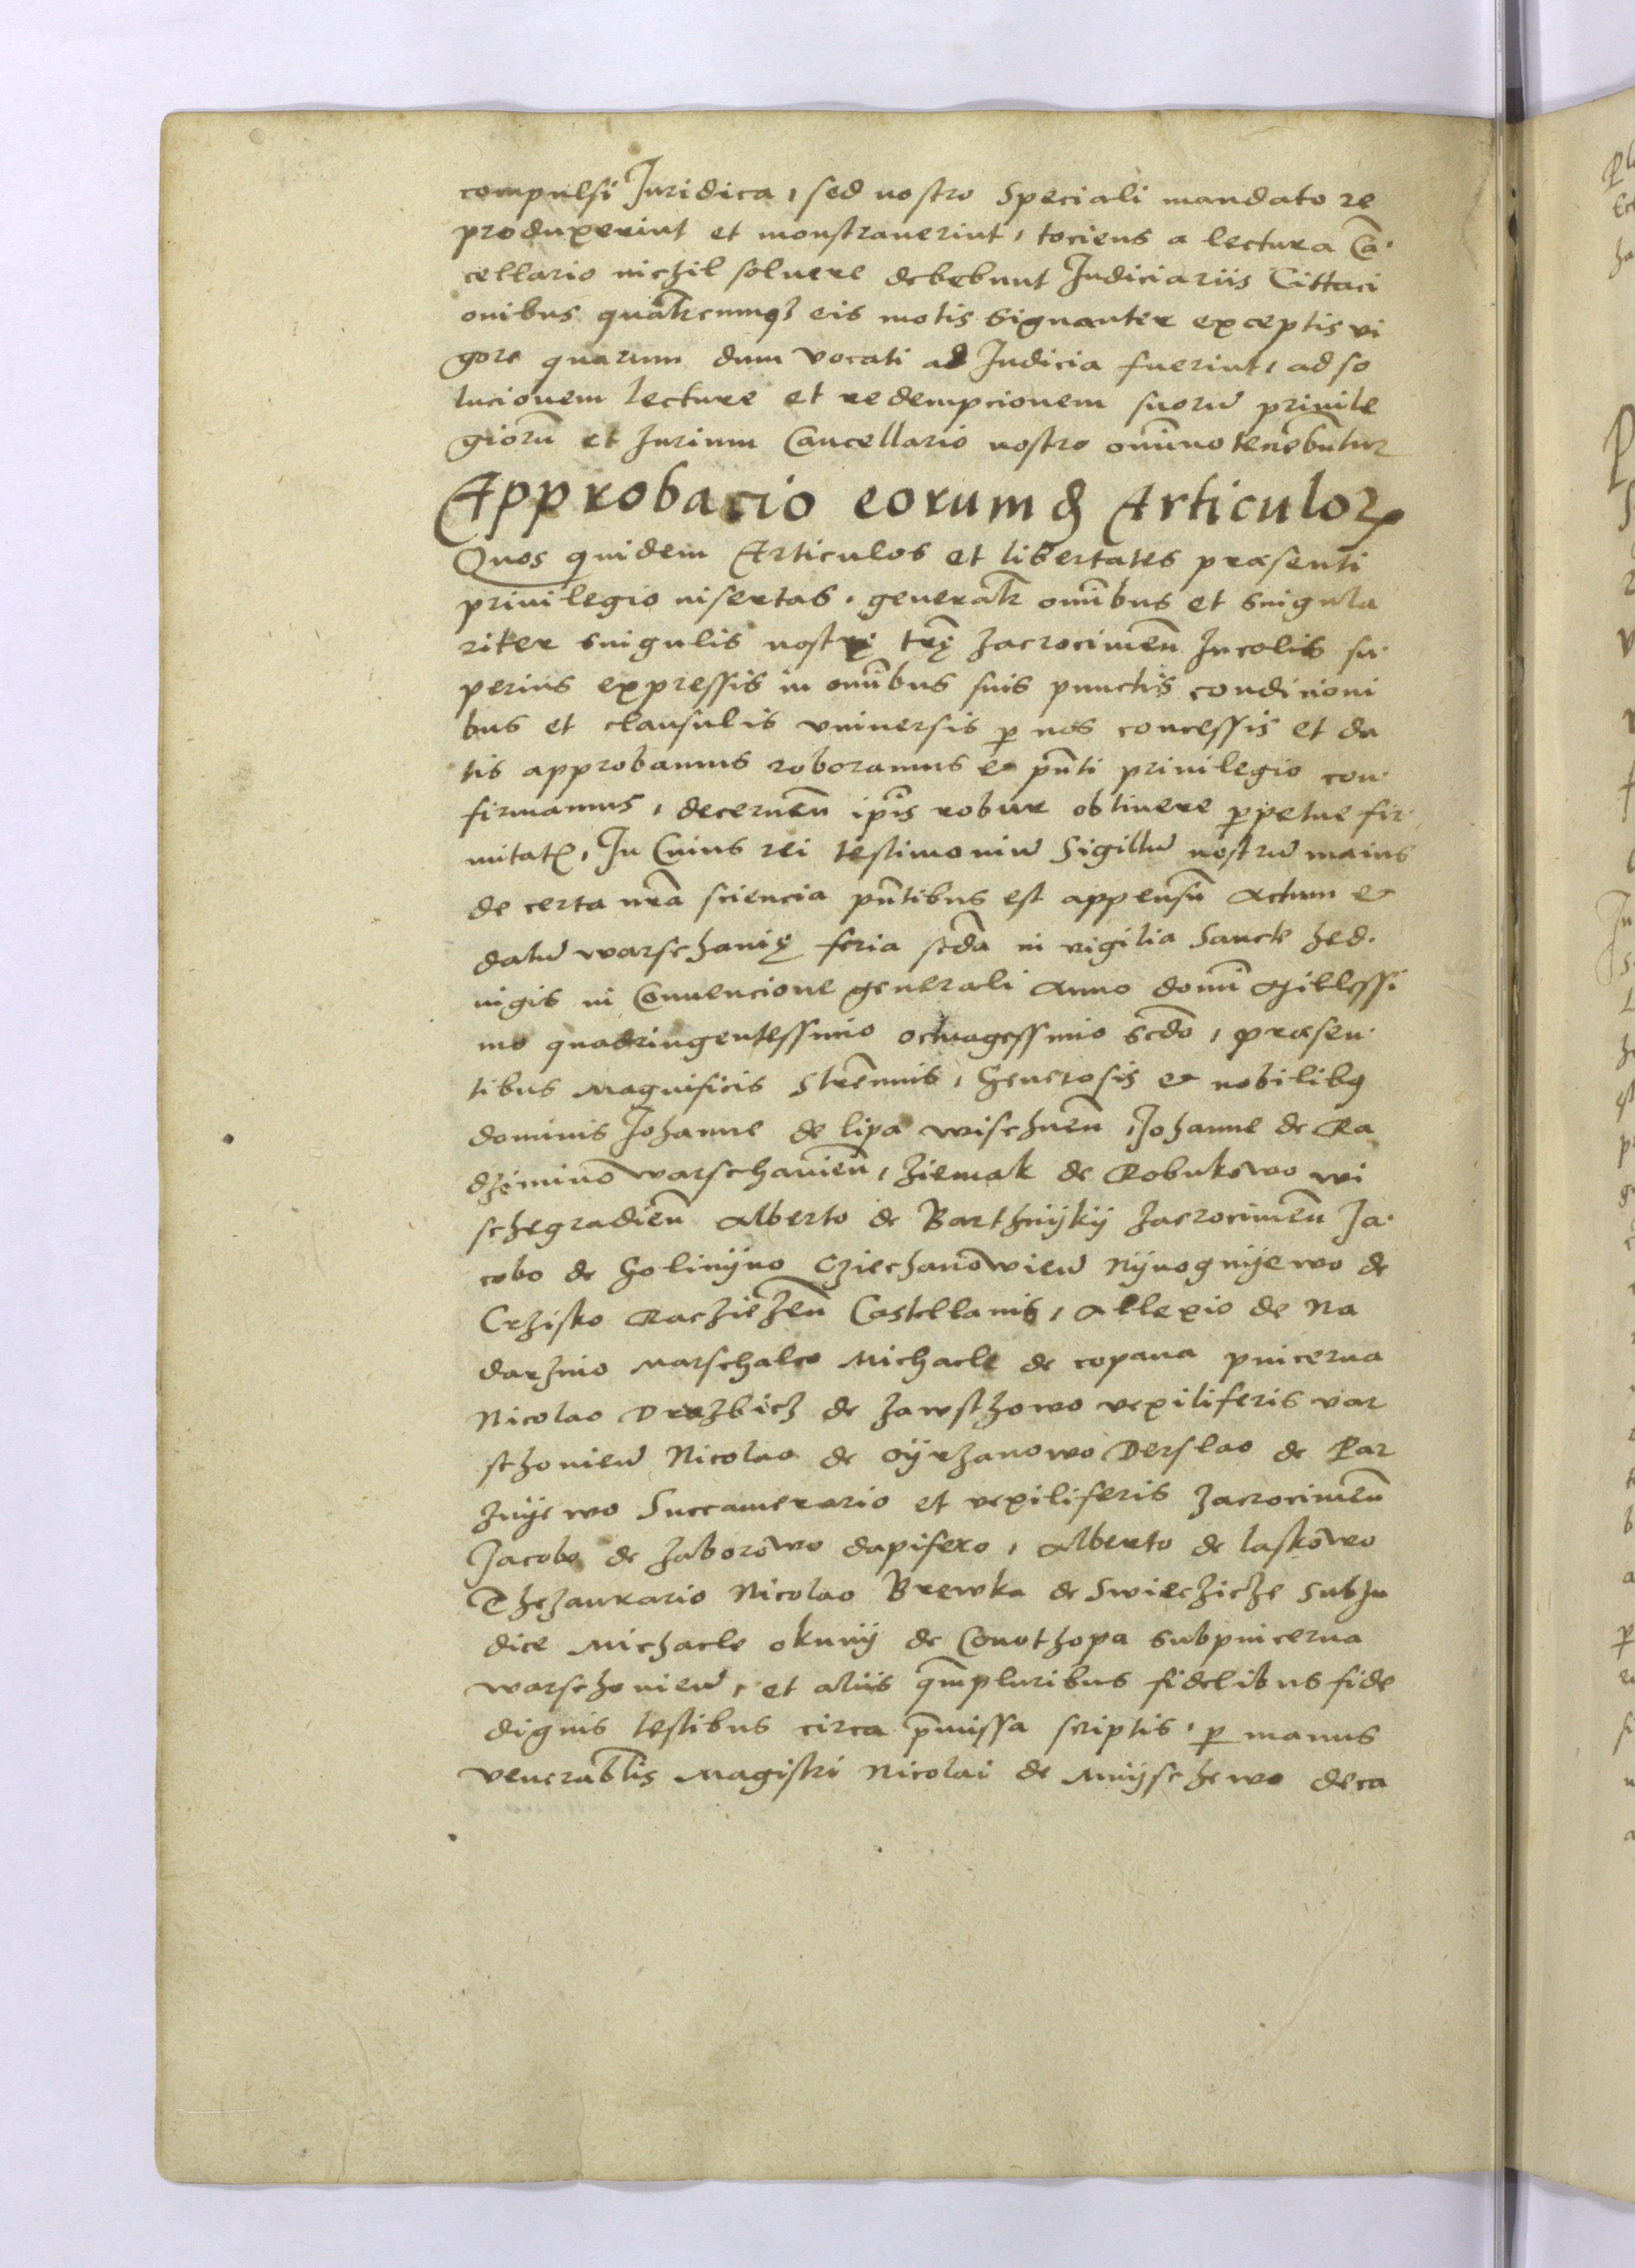 compulsi Juridica, sed nostro Speciali mandato re
produxerint et monstraverint, tociens a lectura Cā-
cellario nichil soluere debebunt Judiciariis Cittaci
onibus eis motis Signanter exceptis vi
gore quarum dum vocati ad Judicia fuerint, ad so
lucionem lecture et redempcionem suorū privile
giorū et Jurium Cancellario nostro om̄ino tenebūtur
Approbacio eorumd Articuloꝝ
Quos quidem Articulos et libertates præsenti
privilegio insertas. om̄ibus et singula
riter singulis nostrę trę Zacrocimeñ Incolis su-
perius expressis in om̄ibus suis punctis condicioni
bus et clausulis vniversis p nos concessis et da
tis approbamus roboramus & pñti privilegio con-
firmamus, decerneñ ip̄is robur obtinere ppetue fir-
mitatꝭ, In Cuius rei testimoniū Sigillū nostrū maius
de certa nrā sciencia pñtibus est appensū Actum &
datū warschavię feria scdā in vigilia Sancte Hed-
vigis in Convencione generali Anno domī Millessi
mo quadringentessimo octuagessimo scdo, præsen-
tibus Magnificis Strēnuis, Generosis & nobilibꝫ
dominis Johanne de lipa wischneñ, Johanne de Ra
dzimino warschavieñ, Ziemak de Robukowo wi
schegradieñ Alberto de Barthnÿkÿ Zacrocimeñ Ja-
cobo de Golinÿno Cziechanowieñ Nÿnognÿewo de
Crzisko Raczieżeñ Castellanis, Allexio de Na
darzino Marschalco Michaele de copana pincerna
Nicolao Drazbicz de Zawsthowo vexiliferis var
schovieñ Nicolao de Oÿrzanowo Derslao de Par
znÿewo Succamerario et vexiliferis Zacrocimeñ
Jacobo de Zaborowo dapifero, Alberto de laskowo
Thezaurario Nicolao Brewka de Swieczicze SubJu
dice Michaele okunÿ de Conothopa Subpincerna
warschovieñ, et aliis qmpluribus fidelibus fide
dignis testibus circa pmissa scriptis, p manus
venerablis Magistri Nicolai de Mnÿschewo deca